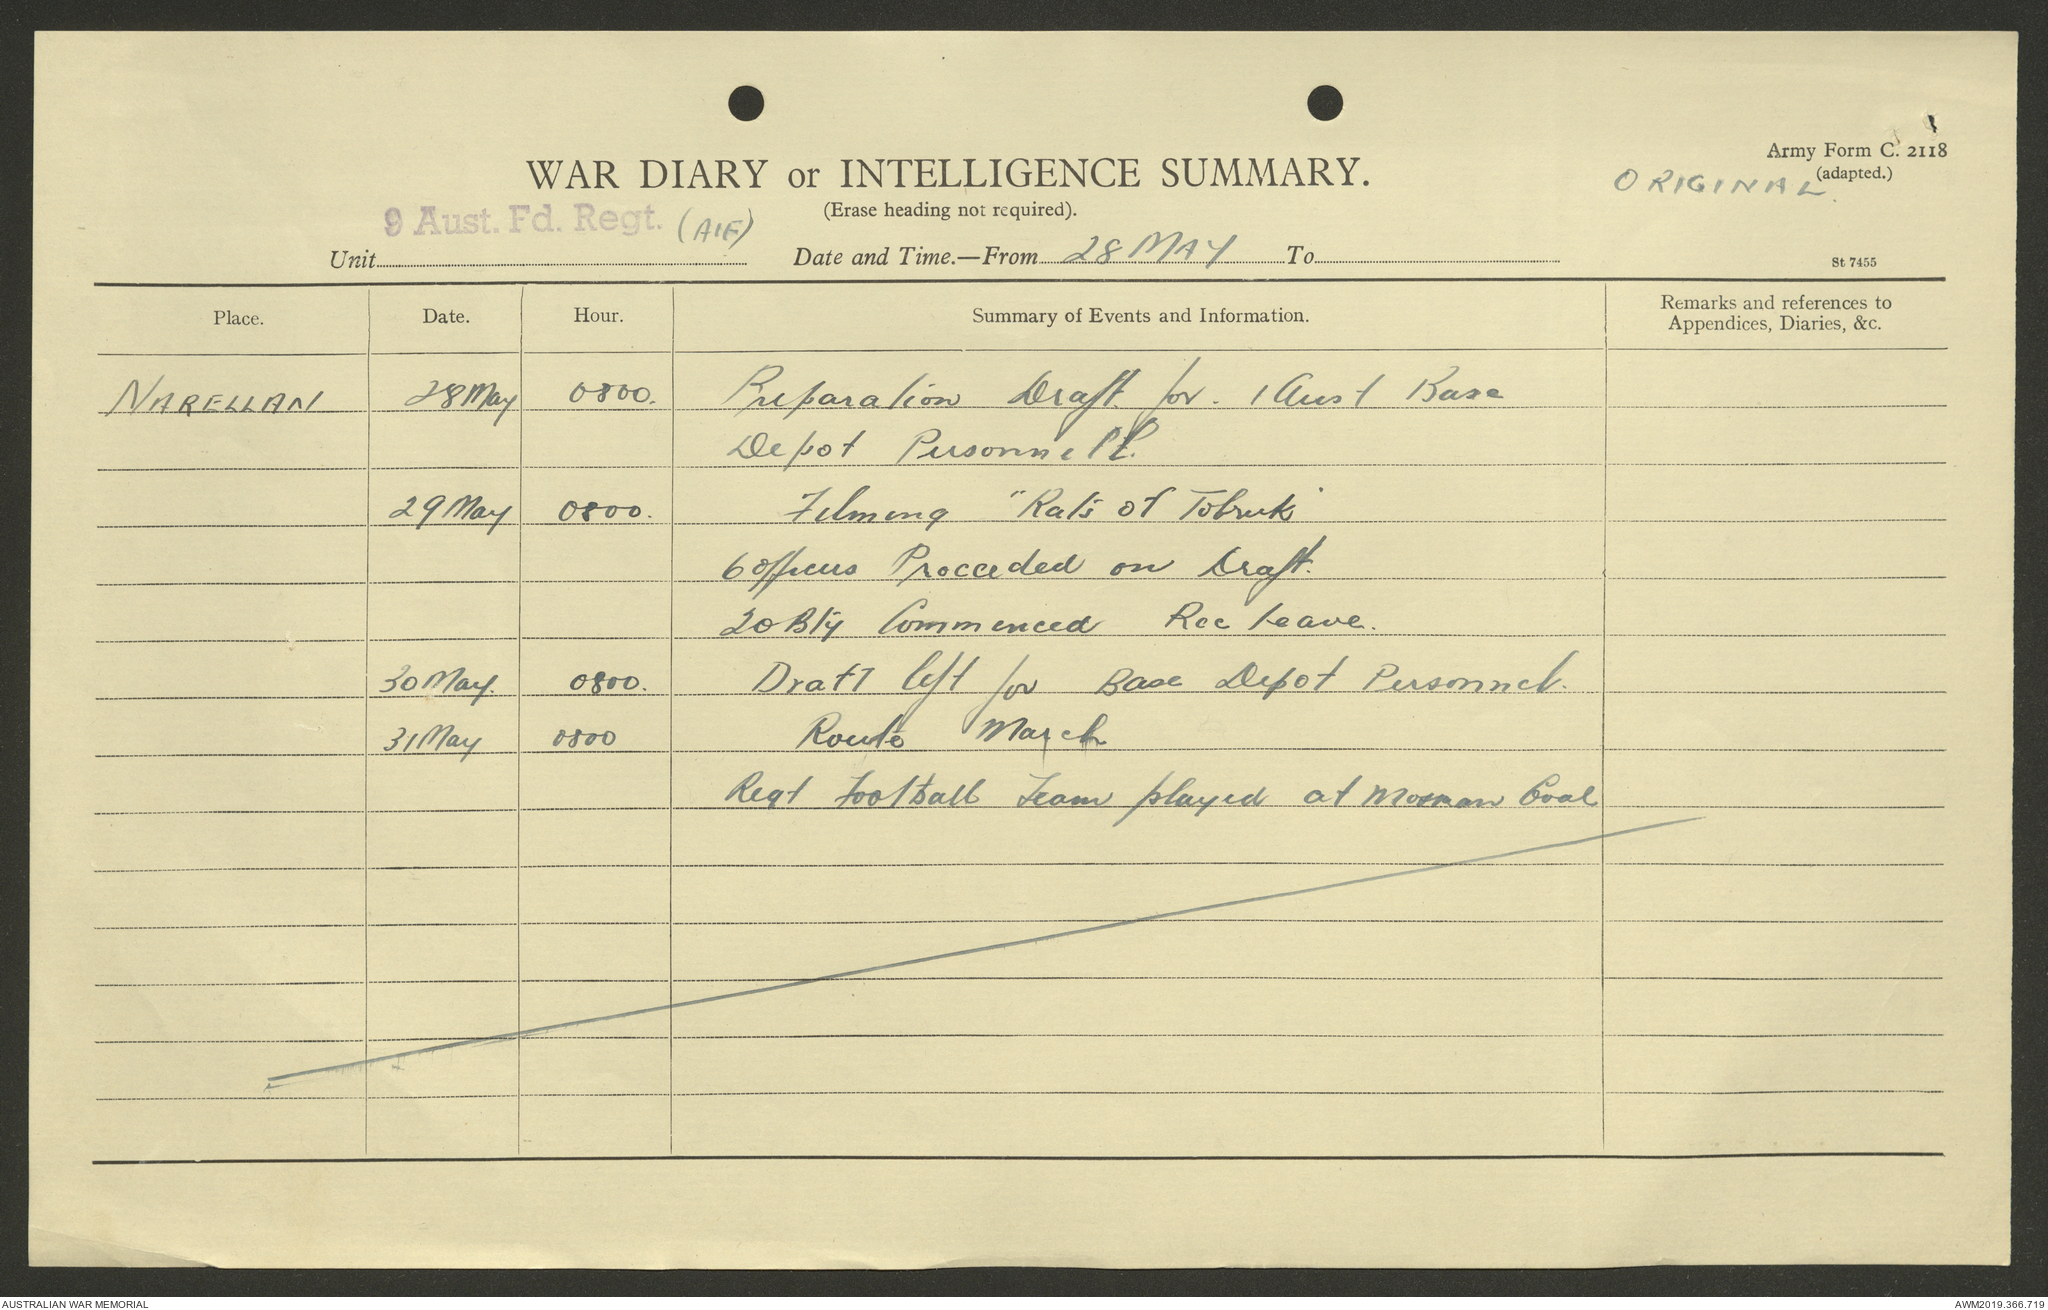 Army Form C. 2118
(adapted.)
ORIGINAL.
WAR DIARY or INTELLIGENCE SUMMARY.
(Erase heading not required).
9 Aust. Fd. Regt. (AIF)
Unit Date and Time.—From 28 MAY To
St 7455
Place. Date. Hour. Summary of Events and Information. Remarks and references to
Appendices, Diaries, &c.
NARELLAN 28 May 0800. Preparation Draft for. 1 Aust Base
Depot Personnell.
29 May 0800. Filming "Rats of Tobruk"
6 officers Procceded on Draft.
20 Bty Commenced Rec leave.
30 May. 0800. Draft left for Base Depot Personnel.
31 May 0800 Route March
Regt Football Team played at Mosman Oval
AUSTRALIAN WAR MEMORIAL
AWM2019.366.719